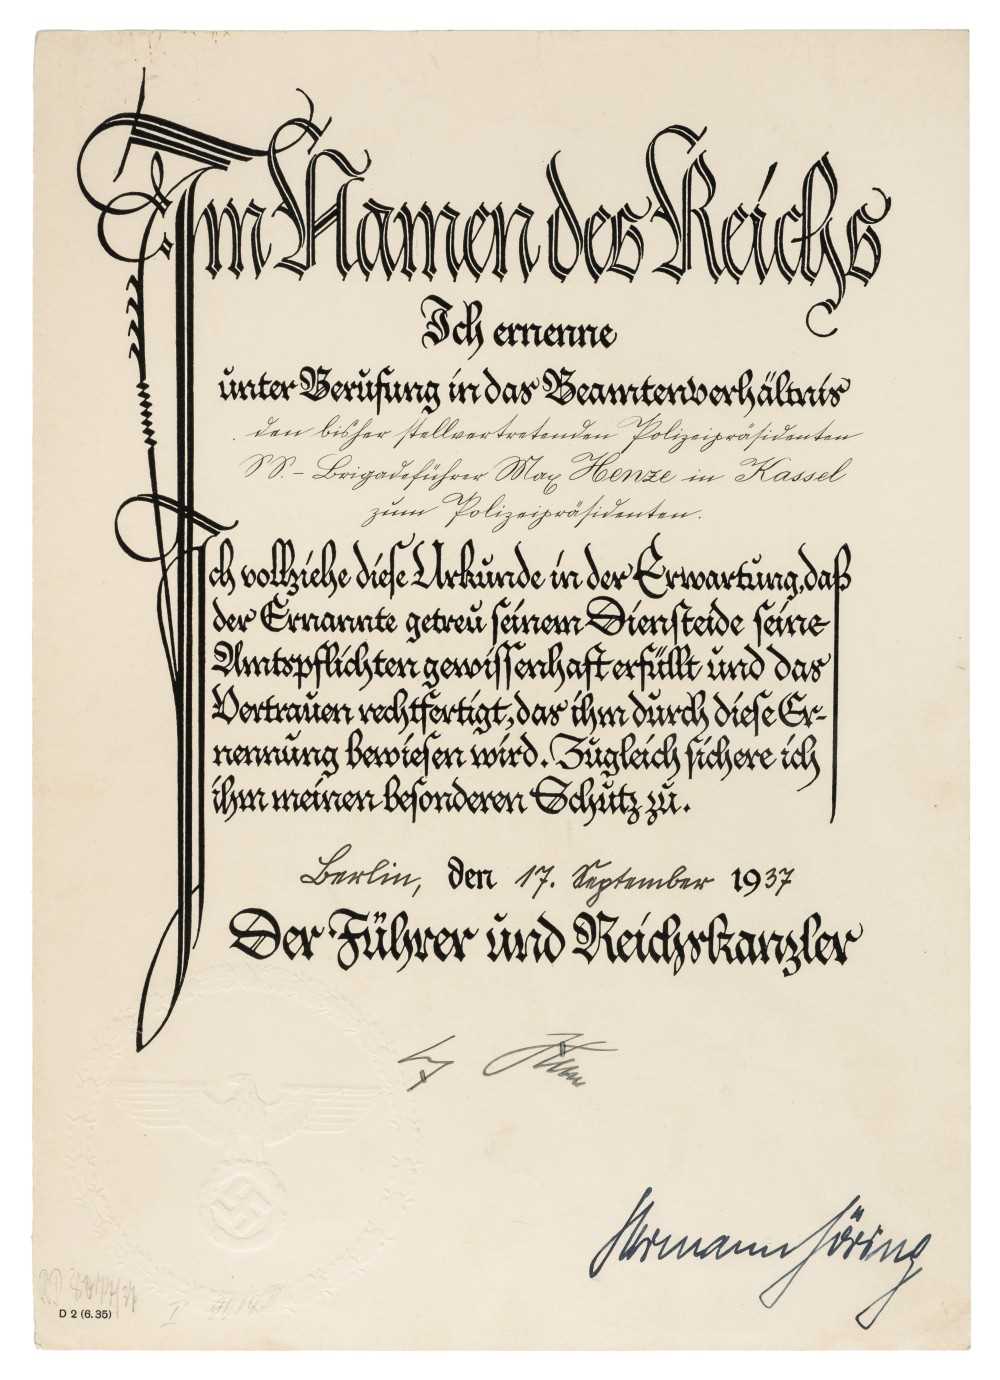 Im Namen des Reichs
Ich ernenne
unter Berufung in das Beamtenverhältnis
den bisher stellvertretenden Polizeipräsidenten
SS.- Brigadeführer Max Henze in Kassel
zum Polizeipräsidenten.
Ich vollziehe diese Urkunde in der Erwartung, daß
der Ernannte getreu seinem Diensteide seine
Amtspflichten gewissenhaft erfüllt und das
Vertrauen rechtfertigt, das ihm durch diese Er-
nennung bewiesen wird. Zugleich sichere ich
ihm meinen besonderen Schutz zu.
Berlin, den 17. September 1937
Der Führer und Reichskanzler
Hermann Göring
D 2 (6.35)